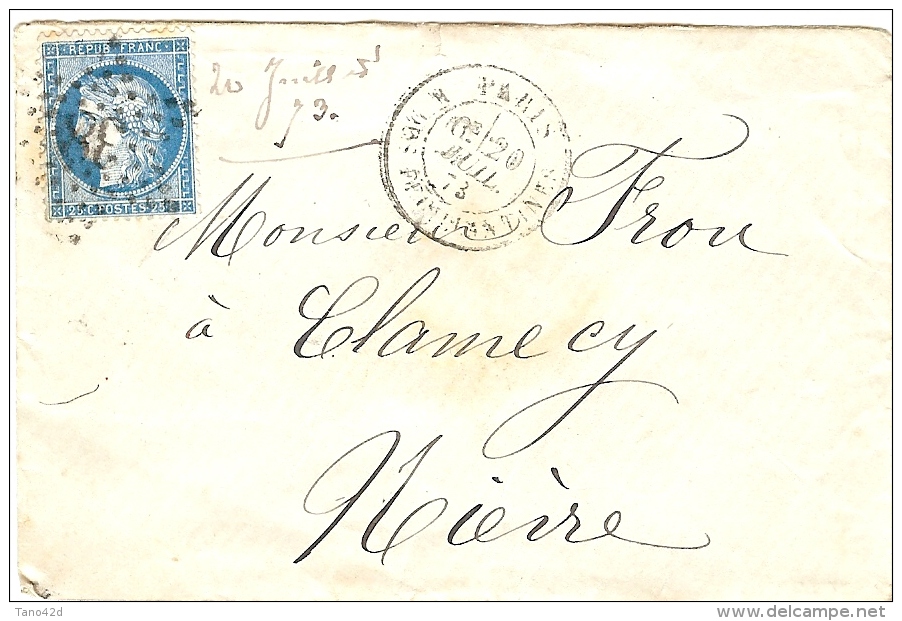 REPUB FRANC
25 C POSTES 25
20 Juillet
73.
PARIS
20
JUIL.
73
Monsieur Frou
à Clamecy
Nièvre
Tano42d
www.delcampe.net